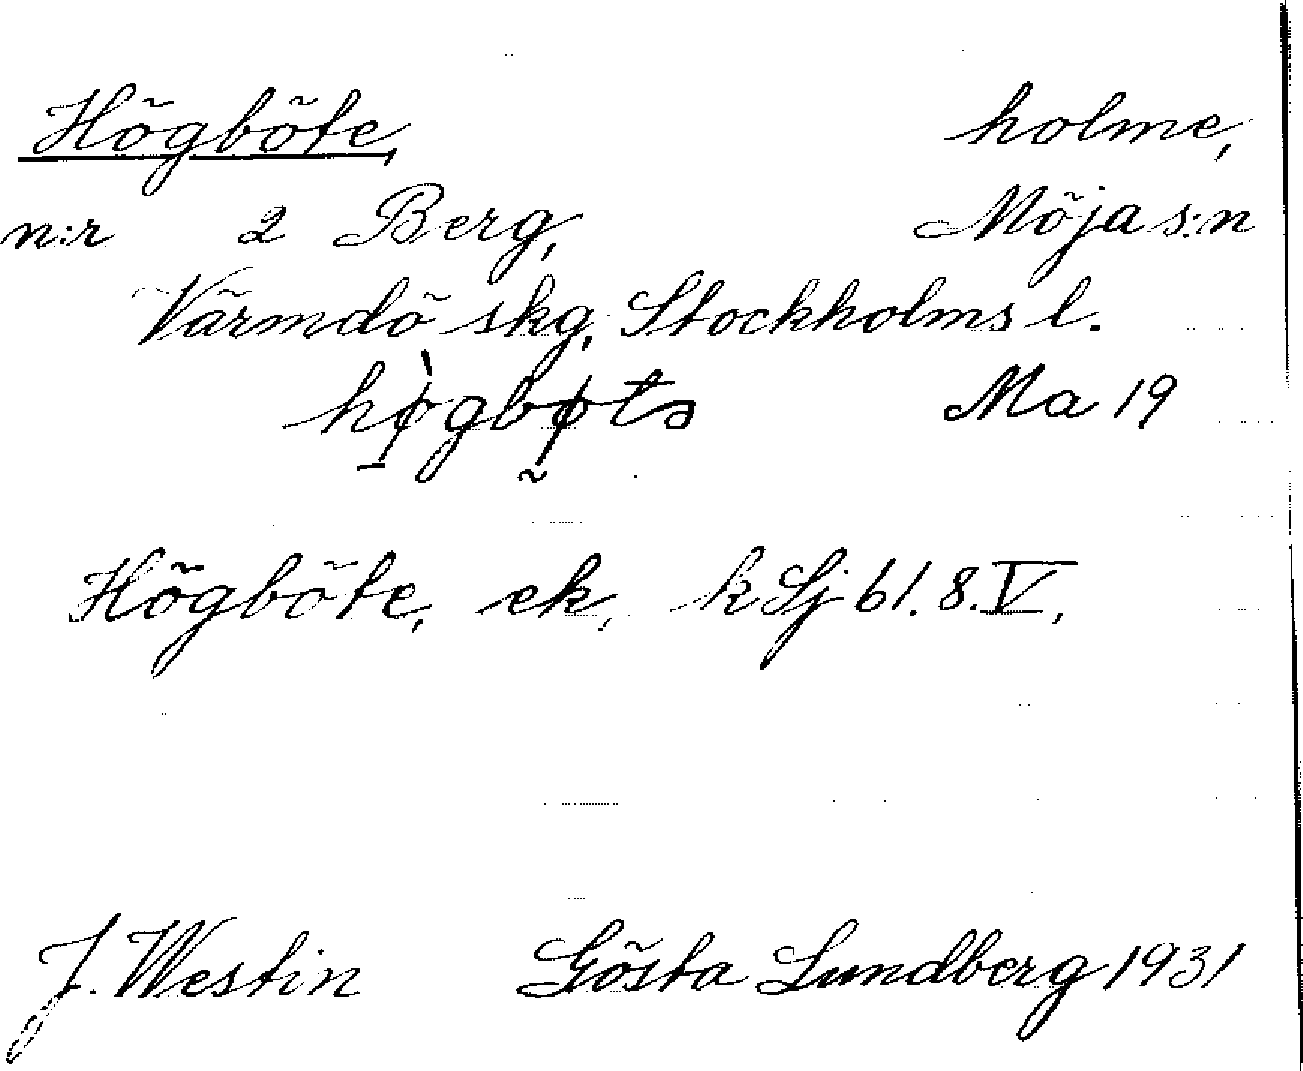 Högböte, holme,
n:r 2 Berg, Möja s:n
Värmdö skg, Stockholms l.
hø̀gbøtə Ma 19
Högböte, ek, k Sj bl. 8. V,
J. Westin Gösta Lundberg 1931